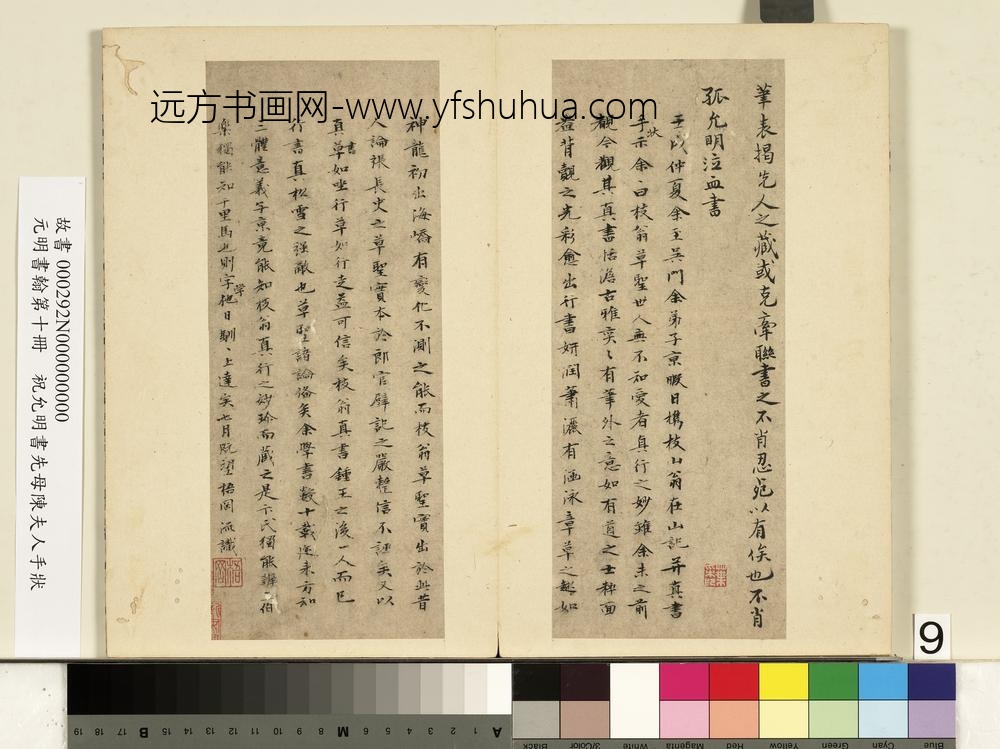 远方书画网-www.yfshuhua.com
筆表揭先人之藏或克牽聯書之不肖忍死以有俟也不肖
孤允明泣血書
壬戌仲夏余至吳門余弟子京暇日携枝山翁在山記并真書
狀
手示余余曰枝翁草聖世人無不知愛者真行之妙雖余未之前
觀今觀其真書恬澹古雅奕〻有筆外之意如有道之士粹面
益背觀之光彩愈出行書妍潤蕭灑有涵泳章草之趣如
神龍初出海嶠有變化不測之能而枝翁草聖實出於此昔
人論張長史之草聖實本於郎官壁記之嚴整信不誣矣又以
書
真草如坐行草如行走益可信矣枝翁真書鍾王之後一人而已
行書真松雪之強敵也草聖諸論備矣余學書數十載邇來方知
二體意義子京竟能知枝翁真行之妙珍而藏之是卞氏獨能辨伯
學
樂獨能知千里馬也則字他日駸〻上達矣七月既望梧岡
識
故書000292N000000000
元明書翰第十冊 祝允明書先母陳夫人手狀
9
19 18 17 16 15 B 14 13 12 11 10 9 8 M 7 6 5 4 3 2 1 A
Black
3/Color
White
Magenta
Red
Yellow
Green
Cyan
Blue